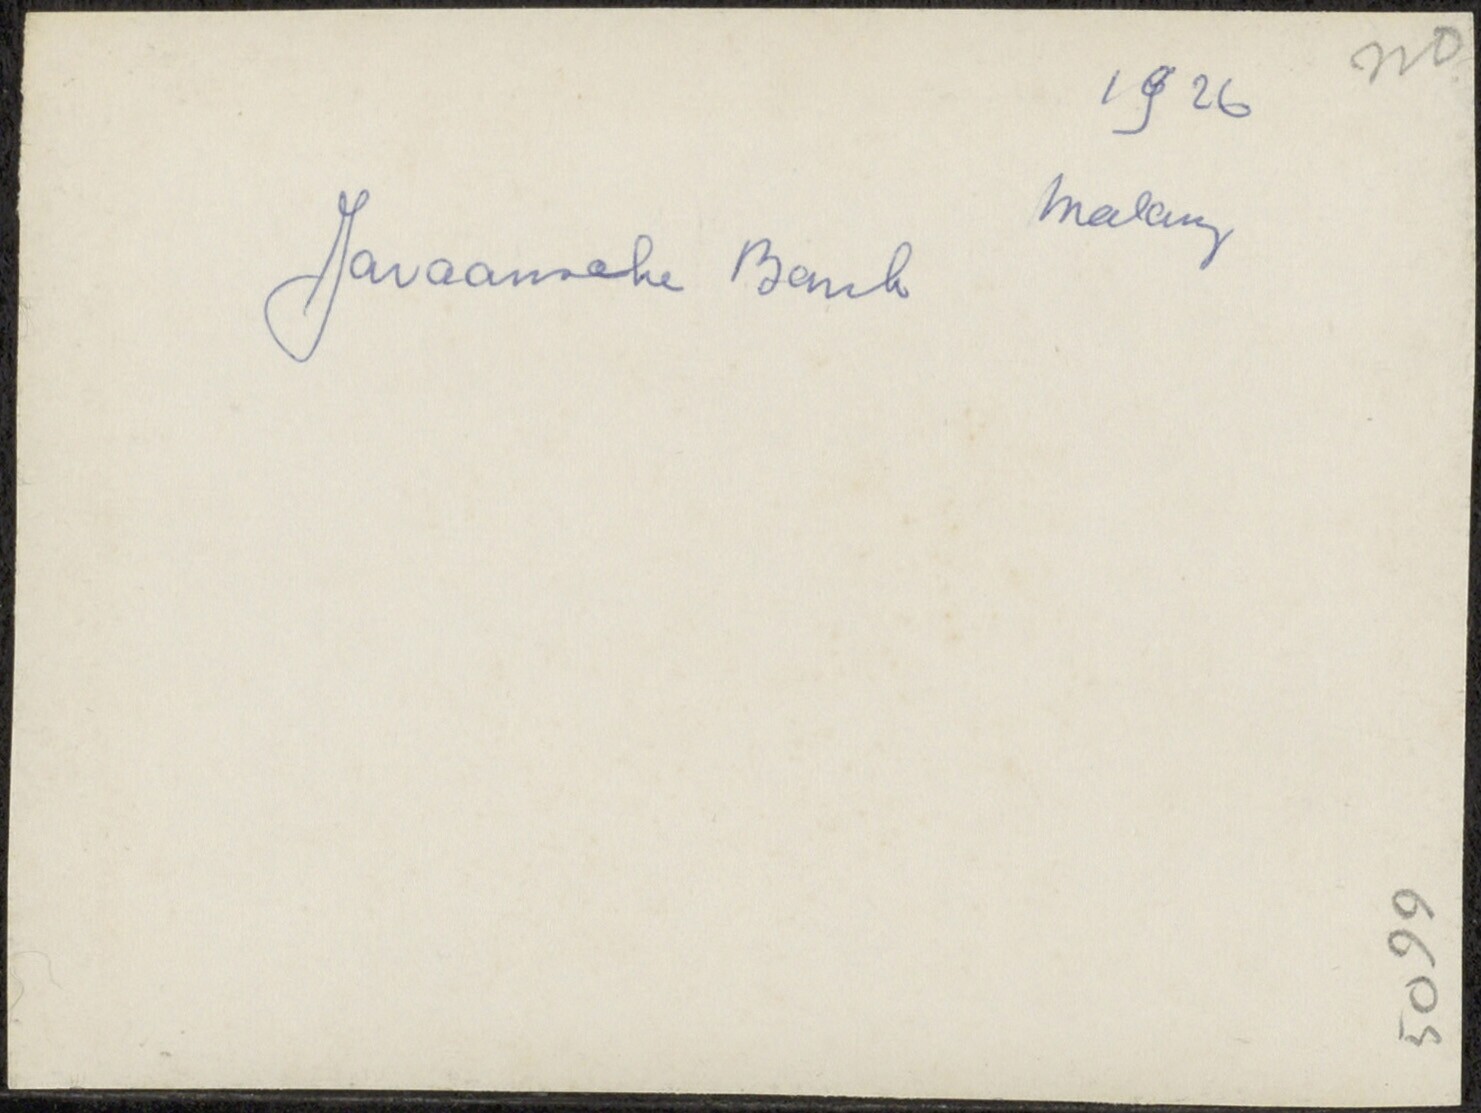 1926
Malang
Javaansche Bank
5099